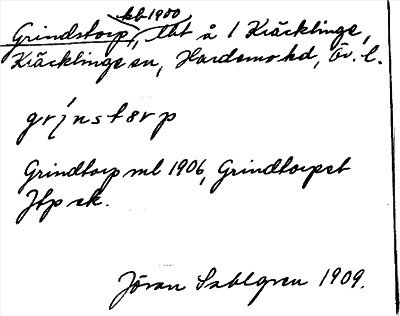 kb 1900
Grindstorp, tht å 1 Kräcklinge,
Kräcklinge sn, Hardemo hd, Ör. l.
grinstorp
Grindtorp ml 1906, Grindtorpet
Jtp sk.
Jöran Sahlgren 1909.